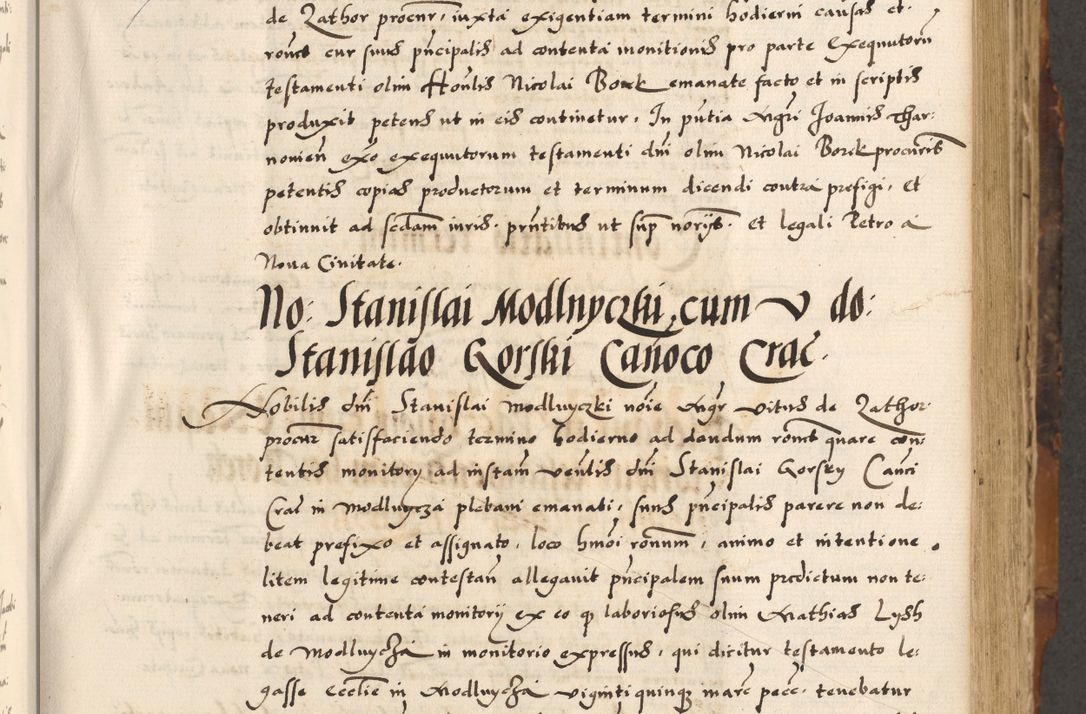 de Zathor procur, iuxta exigentiam termini hodierni causas et
rones cur suus prncipalis ad contenta monitionis pro parte Exequutoru
testamenti olim Honlis Nicolai Borek emanate facto et in scriptis
produxit petens ut in eis continetur. In pntia Mgri Joannis Thar:
novien exo exequutorum testamenti dni olim Nicolai Borek procuris
petentis copias productorum et terminum dicendi contra prefigi, Et
obtinuit ad sedam iuris. prntibus ut sup noriis. et legali Petro a
Nova Civitate.
No: Stanislai Modlnyczki, cum V do:
Stanislao Gorski Canoco Crac.
Nobilis dni Stanislai Modlnyczki noie Mgr Vitus de Zathor
procur satisfaciendo termino hodierno ad dandum rones quare con:
tentis monitory ad instam venlis dni Stanislai Gorsky Canci
Crac in Modlnycza plebani emanati, suus prncipalis parere non de:
beat prefixo et assignato, loco hmoi ronum, animo et intentione
litem legitime contestan allegavit prncipalem suum predictum non te:
neri ad contenta monitorij ex eo q laboriosus olim Mathias Lysh
de Modlnycza in monitorio expressus, qui dicitur testamento le:
gasse Ecclie in Modlnycza viginti quinq marc pecc, tenebatur